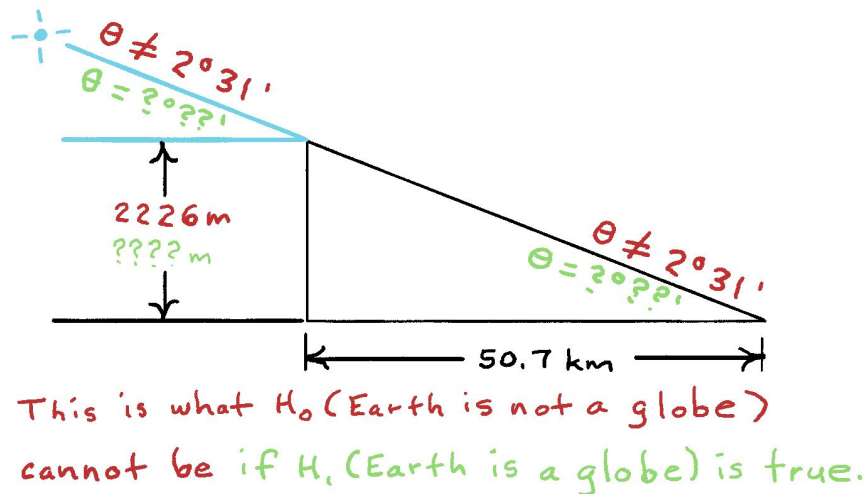 θ ≠ 2°31'
θ = ?°??'
2226m
???? m
θ ≠ 2°31'
θ = ?°??'
50.7 km
This is what H₀ (Earth is not a globe)
cannot be if H₁ (Earth is a globe) is true.